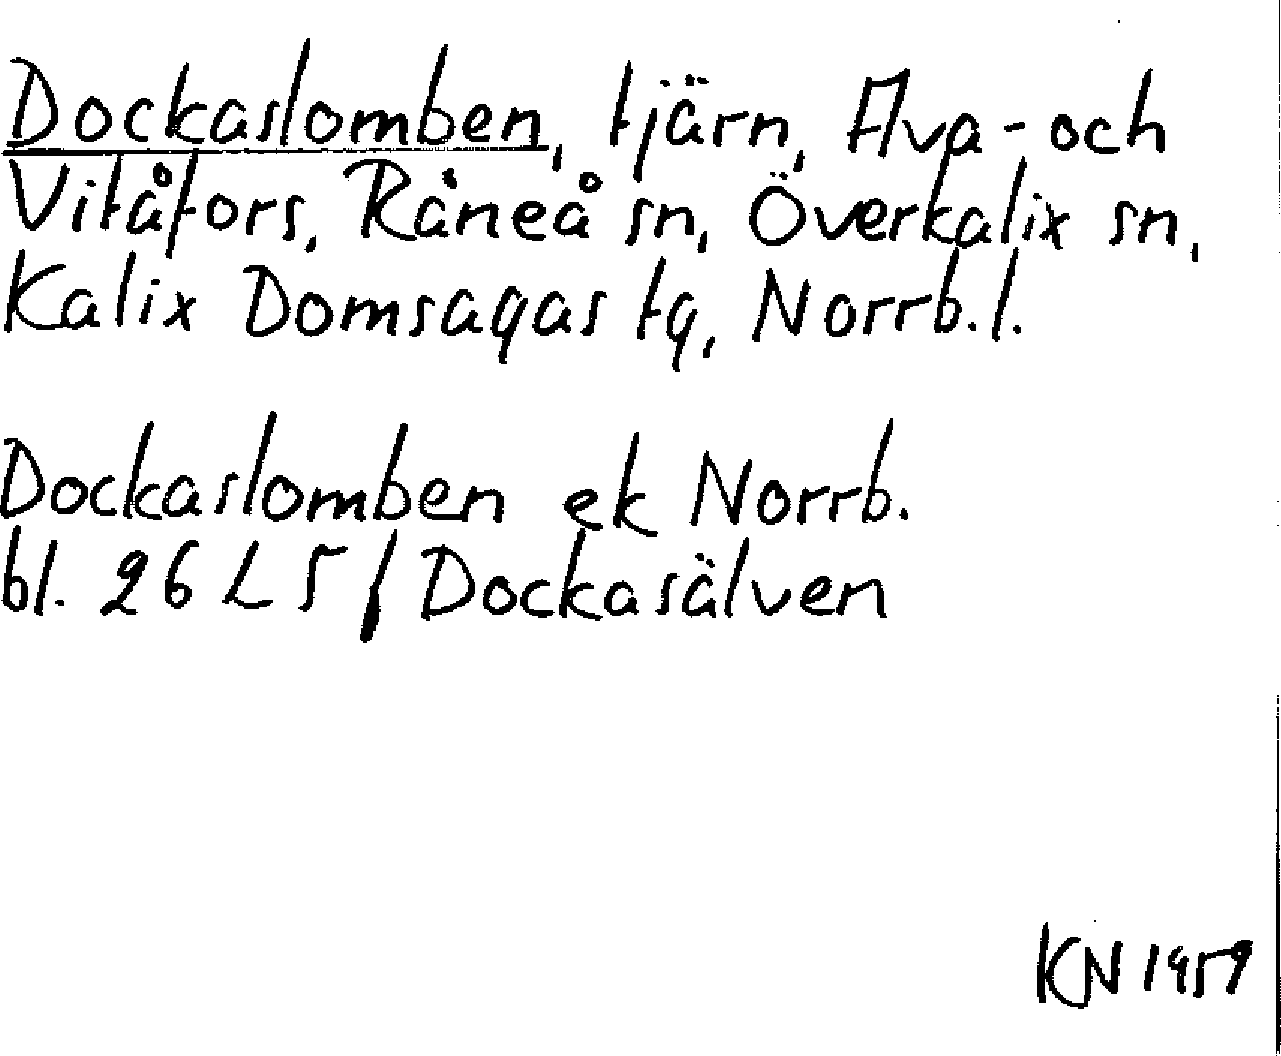 Dockaslomben, tjärn, Alva- och
Vitåfors, Råneå sn, Överkalix sn,
Kalix Domsagas tg, Norrb. l.
Dockaslomben ek Norrb.
bl. 26 L 5 f Dockasälven
KN 1959